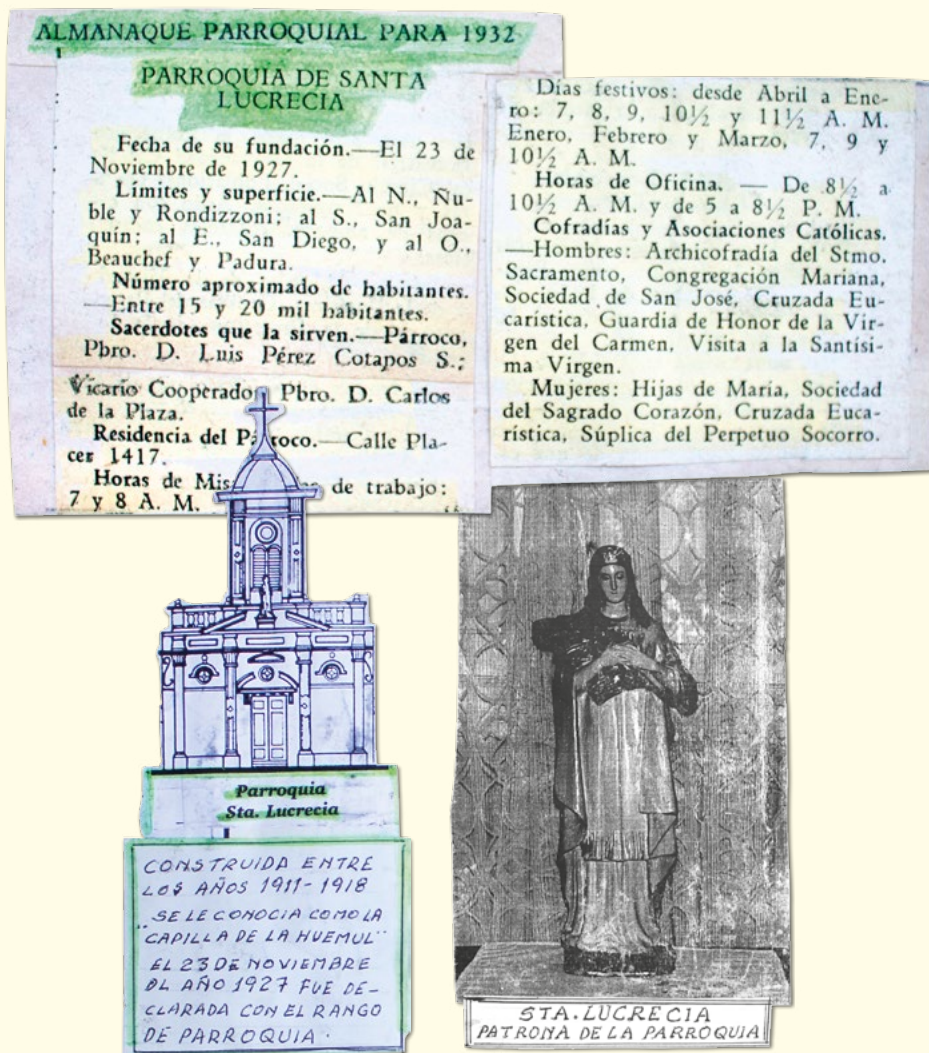 ALMANAQUE PARROQUIAL PARA 1932
PARROQUIA DE SANTA
LUCRECIA
Fecha de su fundación.—El 23 de
Noviembre de 1927.
Límites y superficie.—Al N., Ñu-
ble y Rondizzoni; al S., San Joa-
quín; al E., San Diego, y al O.,
Beauchef y Padura.
Número aproximado de habitantes.
—Entre 15 y 20 mil habitantes.
Sacerdotes que la sirven.—Párroco,
Pbro. D. Luis Pérez Cotapos S.;
Vicario Cooperador Pbro. D. Carlos
de la Plaza.
Residencia del Párroco.—Calle Pla-
cer 1417.
Horas de de trabajo:
7 y 8 A. M.
Días festivos: desde Abril a Ene-
ro: 7, 8, 9, 10½ y 11½ A. M.
Enero, Febrero y Marzo, 7, 9 y
10½ A. M.
Horas de Oficina. — De 8½ a
10½ A. M. y de 5 a 8½ P. M.
Cofradías y Asociaciones Católicas.
—Hombres: Archicofradía del Stmo.
Sacramento, Congregación Mariana,
Sociedad de San José, Cruzada Eu-
carística, Guardia de Honor de la Vir-
gen del Carmen, Visita a la Santísi-
ma Virgen.
Mujeres: Hijas de María, Sociedad
del Sagrado Corazón, Cruzada Euca-
rística, Súplica del Perpetuo Socorro.
Parroquia
Sta. Lucrecia
CONSTRUIDA ENTRE
LOS AÑOS 1911-1918
SE LE CONOCIA COMO LA
"CAPILLA DE LA HUEMUL"
EL 23 DE NOVIEMBRE
DL AÑO 1927 FUE DE-
CLARADA CON EL RANGO
DE PARROQUIA.
STA. LUCRECIA
PATRONA DE LA PARROQUIA